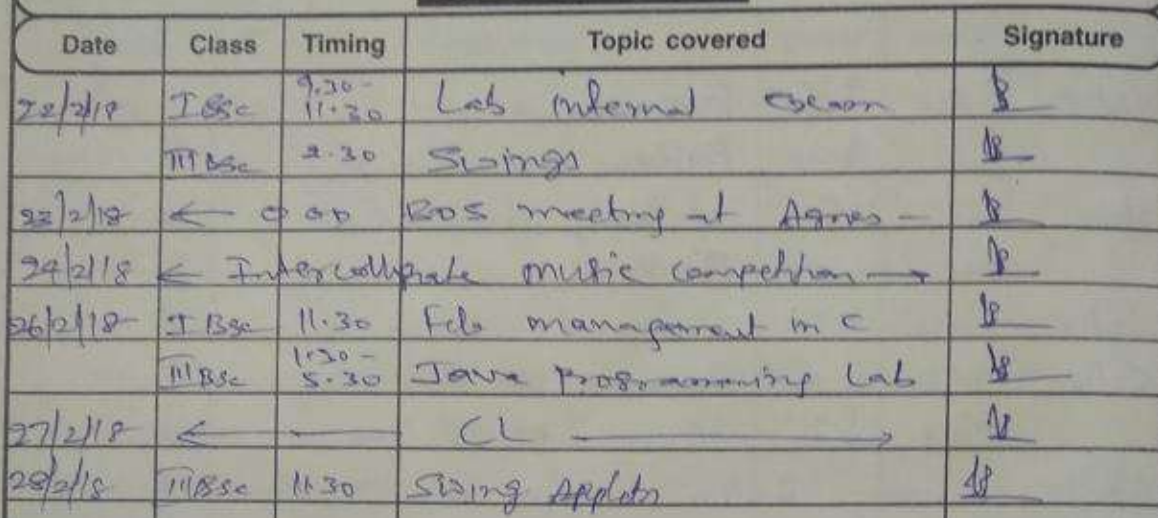 Date Class Timing Topic covered Signature
22/2/18 I BSc 9.30 - 11.30 Lab internal exam
III BSc 2.30 Swings
23/2/18 ← OOD BOS meeting at Agnes -
24/2/18 ← Intercollegiate music competition →
26/2/18 I BSc 11.30 File management in C
III BSc 1.30 - 5.30 Java Programming Lab
27/2/18 ← CL →
28/2/18 III BSc 11.30 Swing Applets